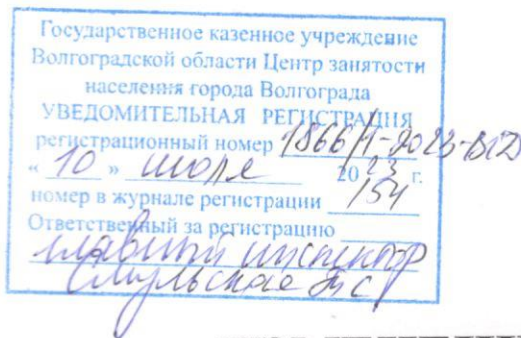 Государственное казенное учреждение
Волгоградской области Центр занятости
населения города Волгограда
УВЕДОМИТЕЛЬНАЯ РЕГИСТРАЦИЯ
регистрационный номер 1866/1-2023-
« 10 » июля 2023 г.
номер в журнале регистрации 154
Ответственный за регистрацию
главный инспектор